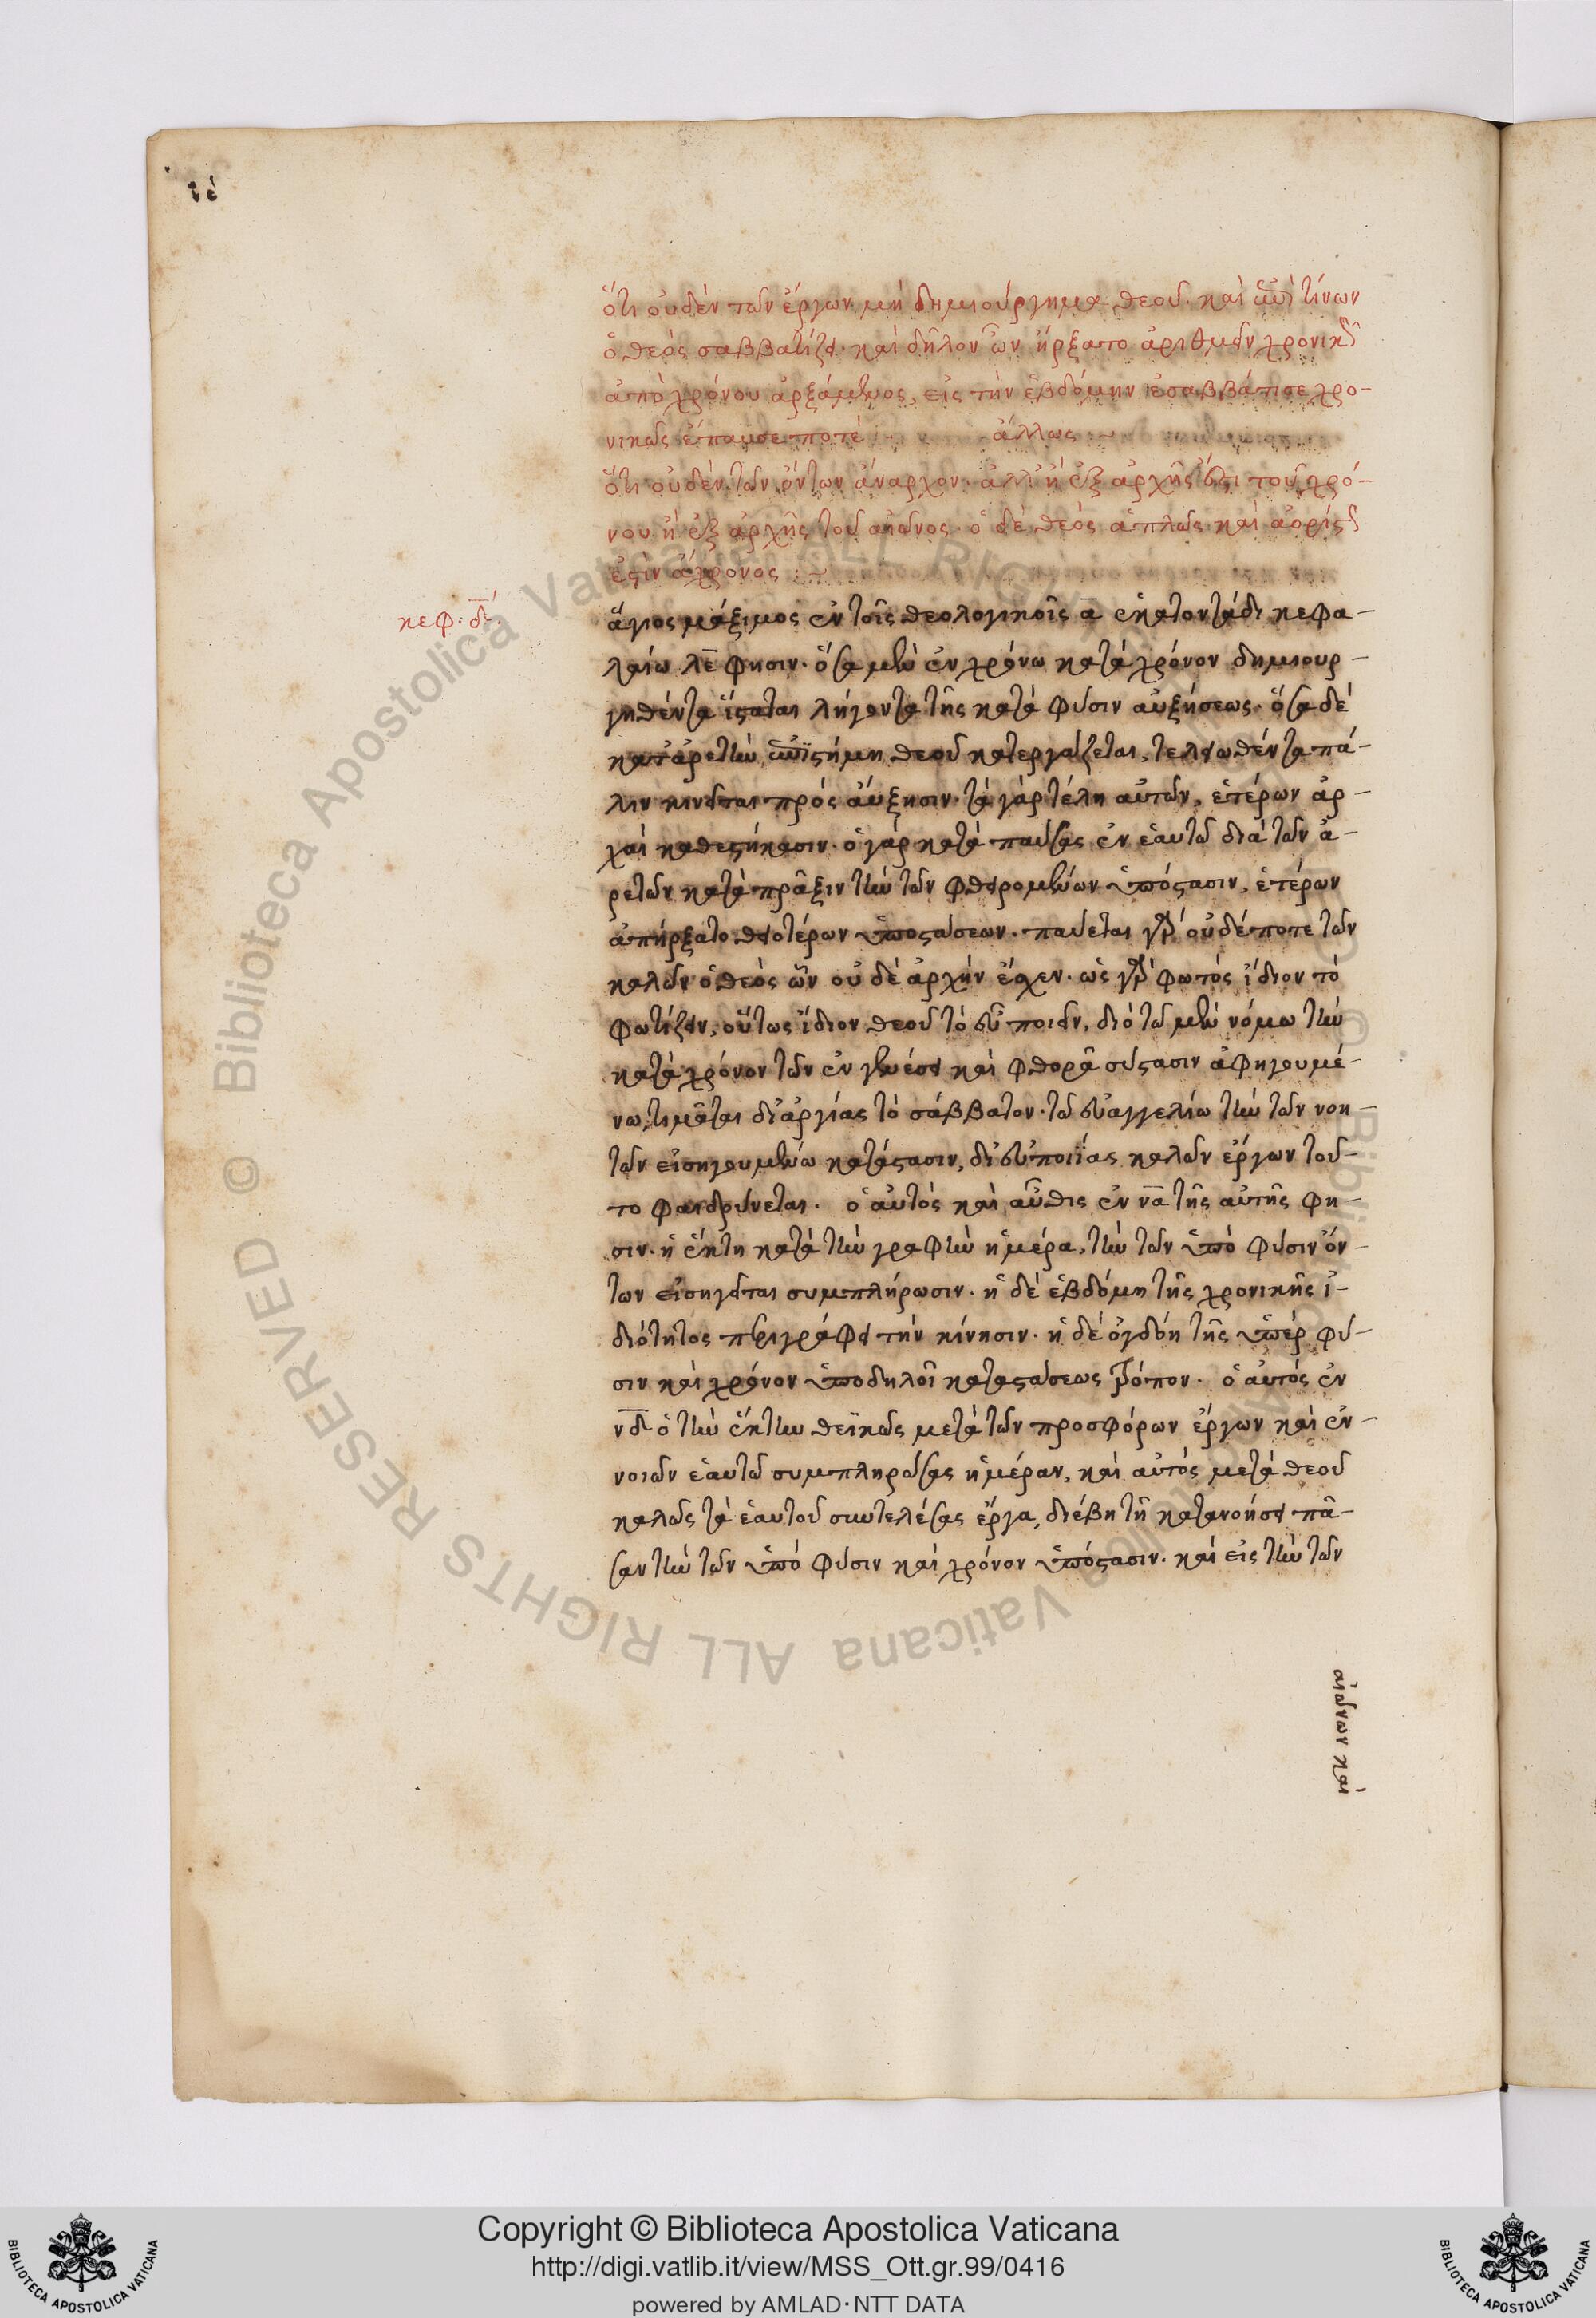 ιε
ὅτι οὐδὲν τῶν ἔργων μὴ δημιούργημα θεοῦ. καὶ ἐπὶ τίνων
ὁ θεὸς σαββατίζει. καὶ δῆλον ὧν ἤρξατο ἀριθμεῖν χρονικῶς
ἀπὸ χρόνου ἀρξάμενος, εἰς τὴν ἑβδόμην ἐσαββάτισε χρο-
νικῶς ἔπαυσε ποτὲ :- ἄλλως :~
ὅτι οὐδὲν τῶν ὄντων ἄναρχον. ἀλλ' ἢ ἐξ ἀρχῆς ἐστι τοῦ χρό-
νου ἢ ἐξ ἀρχῆς τοῦ αἰῶνος. ὁ δὲ θεὸς ἁπλῶς καὶ ἀορίστως
ἐστὶν ἄχρονος :~
κεφ. δι.
ἅγιος μάξιμος ἐν τοῖς θεολογικοῖς α ἑκατοντάδι κεφα-
λαίω λε φησιν. ὅσα μὲν ἐν χρόνω κατὰ χρόνον δημιουρ-
γηθέντα ἵσταται λήγοντα τῆς κατὰ φύσιν αὐξήσεως. ὅσα δὲ
κατ' ἀρετὴν ἐπιστήμη θεοῦ κατεργάζεται, τελειωθέντα πά-
λιν κινεῖται πρὸς αὔξησιν. τὰ γὰρ τέλη αὐτῶν, ἑτέρων ἀρ-
χαὶ καθεστήκασιν. ὁ γὰρ καταπαύσας ἐν ἑαυτῶ διὰ τῶν ἀ-
ρετῶν κατὰ πρᾶξιν τὴν τῶν φθειρομένων ὑπόστασιν, ἑτέρων
ἀπήρξατο θειοτέρων ὑποστάσεων. παύεται γὰρ οὐδέποτε τῶν
καλῶν ὁ θεὸς ὧν οὐδὲ ἀρχὴν ἔσχεν. ὡς γὰρ φωτὸς ἴδιον τὸ
φωτίζειν, οὕτως ἴδιον θεοῦ τὸ εὖ ποιεῖν, διὸ τῶ μὲν νόμω τὴν
κατὰ χρόνον τῶν ἐν γενέσει καὶ φθορᾶ σύστασιν ἀφηγουμέ-
νω, τιμᾶται δι' ἀργίας τὸ σάββατον. τῶ εὐαγγελίω τὴν τῶν νοη-
τῶν εἰσηγουμένω κατάστασιν, δι' εὐποιΐας καλῶν ἔργων τοῦ-
το φαιδρύνεται. ὁ αὐτὸς καὶ αὖθις ἐν να τῆς αὐτῆς φη-
σιν. ἡ ἕκτη κατὰ τὴν γραφὴν ἡμέρα, τὴν τῶν ὑπὸ φύσιν ὄν-
των εἰσηγεῖται συμπλήρωσιν. ἡ δὲ ἑβδόμη τῆς χρονικῆς ἰ-
διότητος περιγράφει τὴν κίνησιν. ἡ δὲ ὀγδόη τῆς ὑπὲρ φύ-
σιν καὶ χρόνον ὑποδηλοῖ καταστάσεως τρόπον. ὁ αὐτὸς ἐν
νδ ὁ τὴν ἕκτην θεϊκῶς μετὰ τῶν προσφόρων ἔργων καὶ ἐν-
νοιῶν ἑαυτῶ συμπληρώσας ἡμέραν, καὶ αὐτὸς μετὰ θεοῦ
καλῶς τὰ ἑαυτοῦ συντελέσας ἔργα, διέβη τῆ κατανοήσει πᾶ-
σαν τὴν τῶν ὑπὸ φύσιν καὶ χρόνον ὑπόστασιν. καὶ εἰς τὴν τῶν
αἰώνων καὶ
© Biblioteca Apostolica Vaticana ALL RIGHTS RESERVED
Copyright © Biblioteca Apostolica Vaticana
http://digi.vatlib.it/view/MSS_Ott.gr.99/0416
powered by AMLAD·NTT DATA
BIBLIOTECA APOSTOLICA VATICANA
BIBLIOTECA APOSTOLICA VATICANA